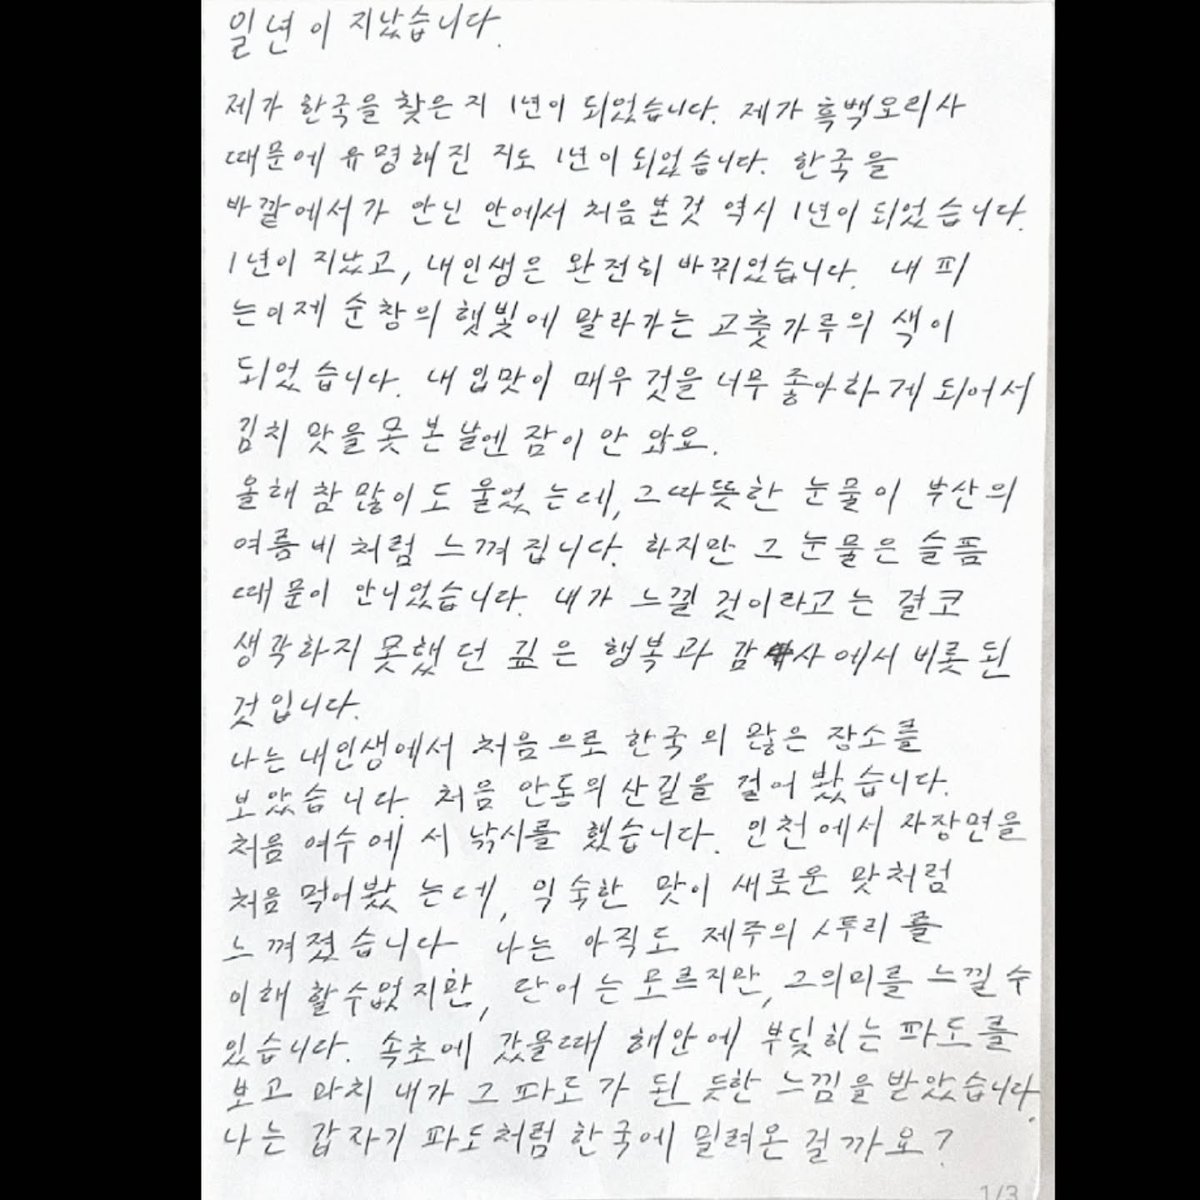 일년이 지났습니다.
제가 한국을 찾은 지 1년이 되었습니다. 제가 흑백요리사
때문에 유명해진 지도 1년이 되었습니다. 한국을
바깥에서가 안닌 안에서 처음 본것 역시 1년이 되었습니다.
1년이 지났고, 내인생은 완전희 바뀌었습니다. 내 피
는이제 순창의 햇빛에 말라가는 고춧가루의 색이
되었습니다. 내 입맛이 매우 것을 너무 좋아하게 되어서
김치 맛을 못 본 날엔 잠이 안 와요.
올해 참 많이도 울었는데, 그따뜻한 눈물이 부산의
여름비처럼 느껴집니다. 하지만 그 눈물은 슬픔
때문이 안니었습니다. 내가 느낄 것이라고는 결코
생각하지 못했던 깊은 행복과 감사에서 비롯된
것입니다.
나는 내인생에서 처음으로 한국의 많은 장소를
보았습니다. 처음 안동의 산길을 걸어 봤습니다.
처음 여수에서 낚시를 했습니다. 인천에서 자장면을
처음 먹어봤는데, 익숙한 맛이 새로운 맛처럼
느껴졌습니다 나는 아직도 제주의 사투리를
이해 할수없지만, 단어는 모르지만, 그의미를 느낄 수
있습니다. 속초에 갔을때 해안에 부딪히는 파도를
보고 마치 내가 그 파도가 된 듯한 느낌을 받았습니다.
나는 갑자기 파도처럼 한국에 밀려온 걸까요?
1/3